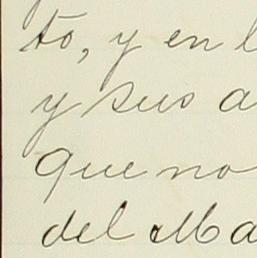 to, y en l
y sus a
que no
del Ma